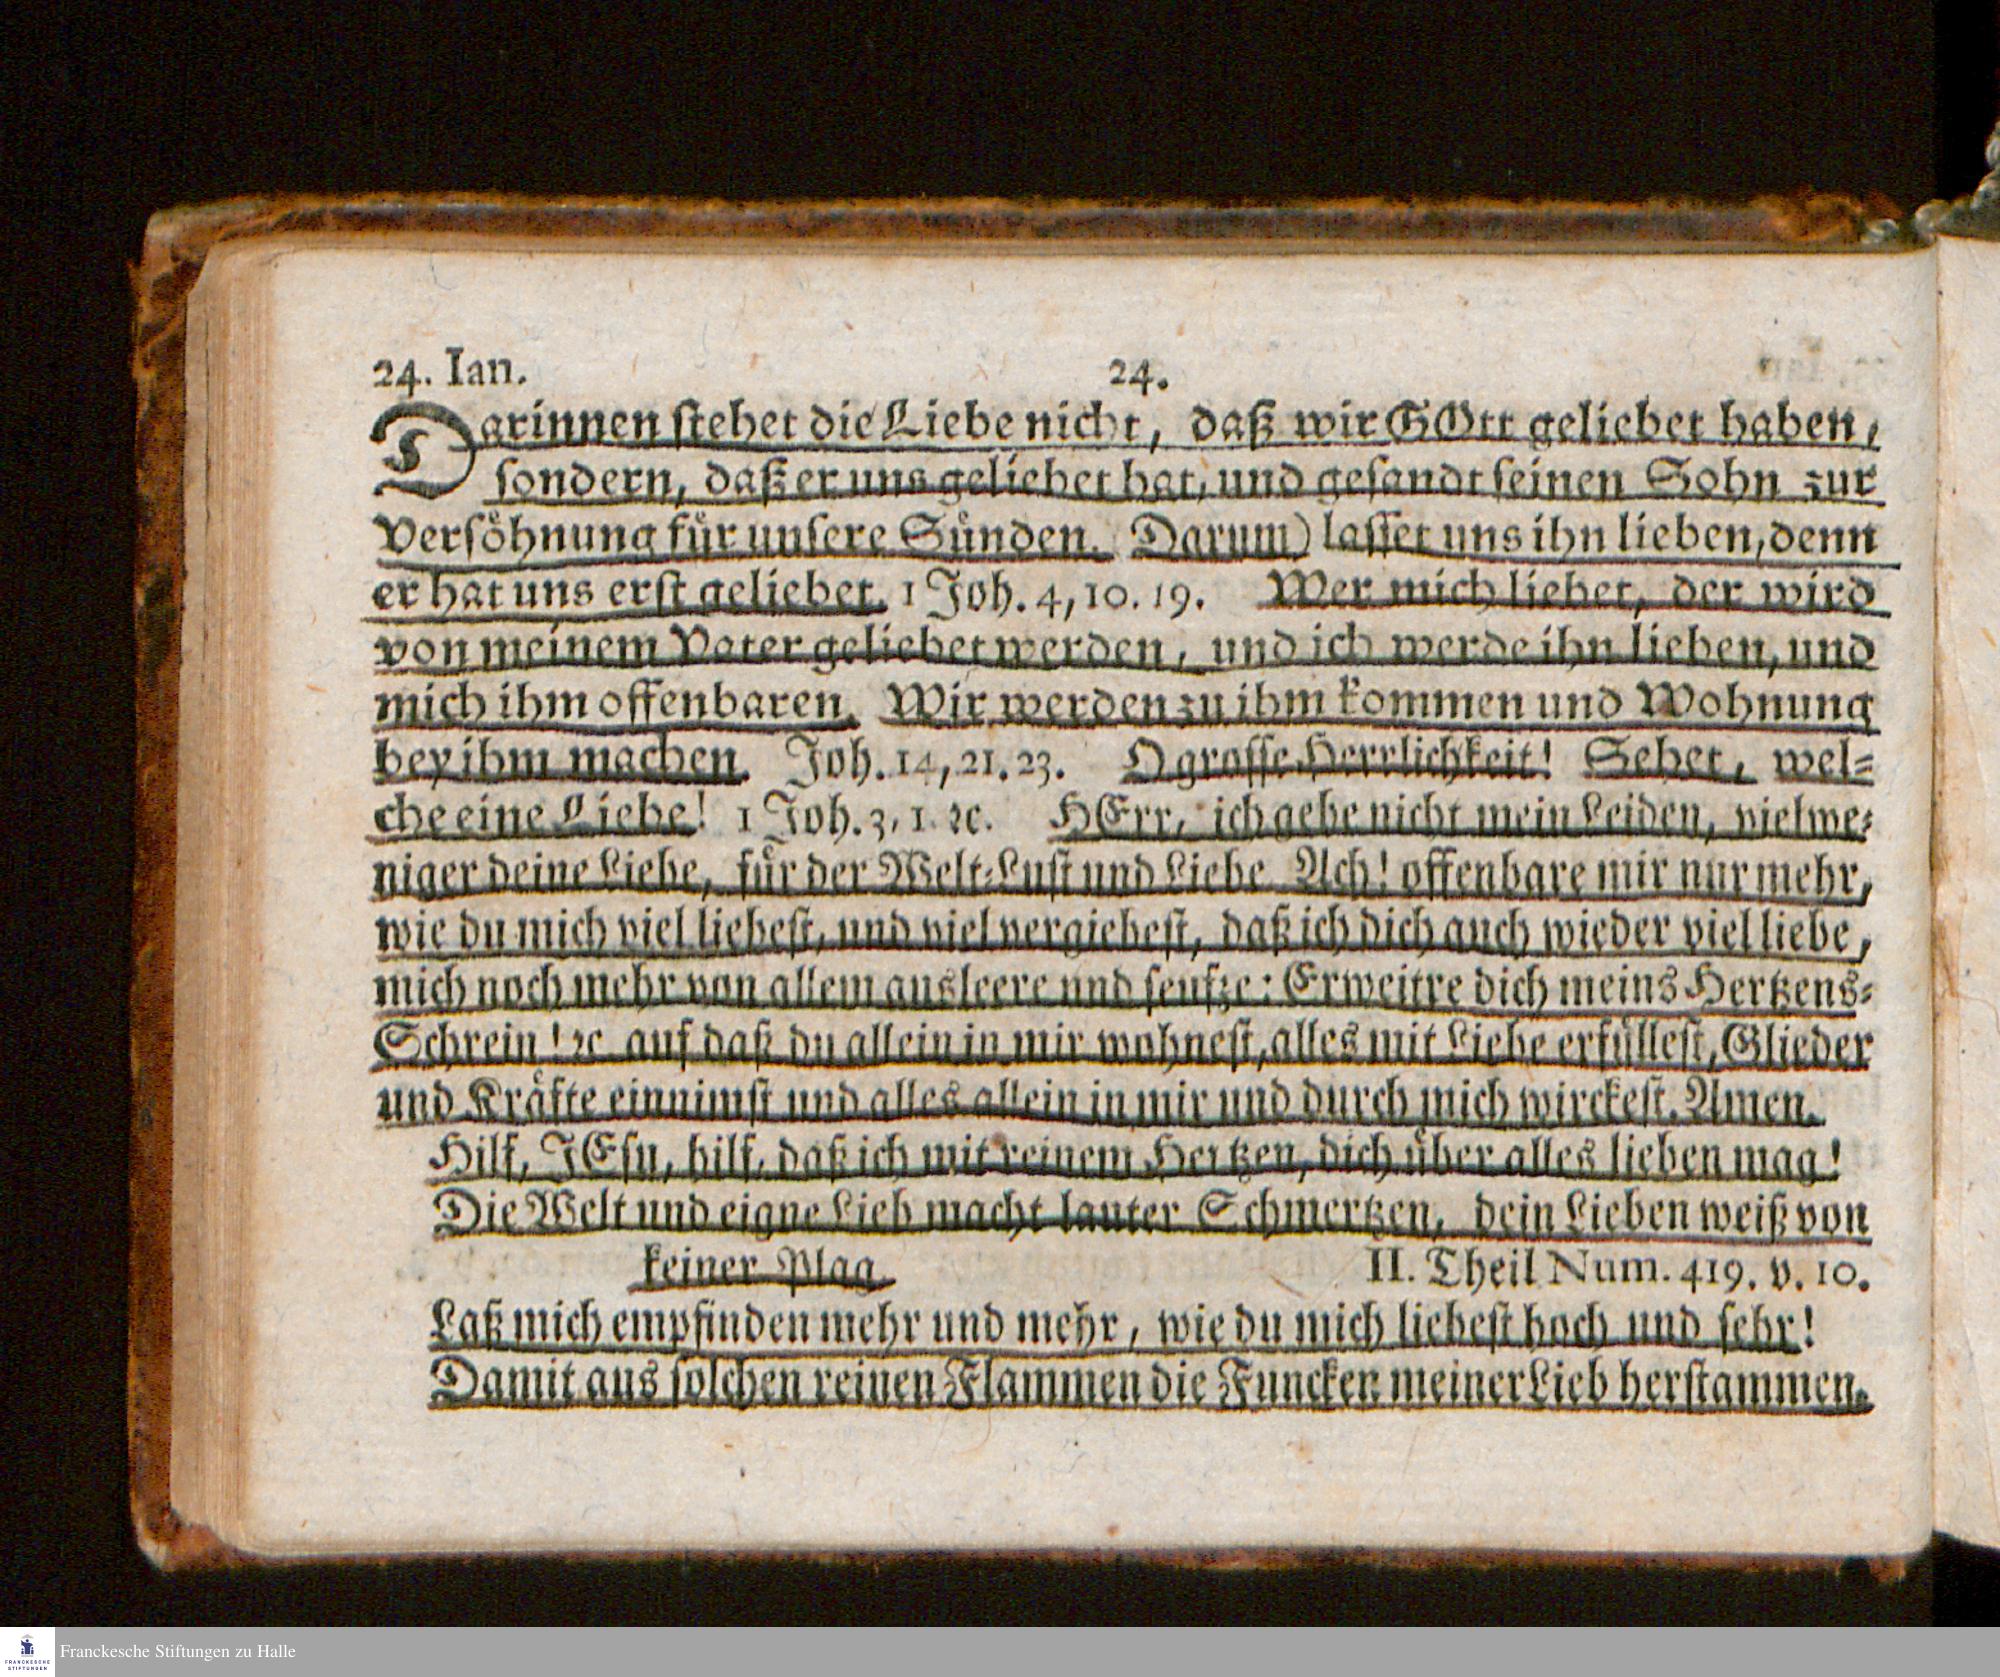 24. Ian. 24.
Darinnen stehet die Liebe nicht, daß wir GOtt geliebet haben,
sondern, daß er uns geliebet hat, und gesandt seinen Sohn zur
Versöhnung für unsere Sünden. (Darum) lasset uns ihn lieben, denn
er hat uns erst geliebet. 1 Joh. 4, 10. 19. Wer mich liebet, der wird
von meinem Vater geliebet werden, und ich werde ihn lieben, und
mich ihm offenbaren. Wir werden zu ihm kommen und Wohnung
bey ihm machen. Joh. 14, 21. 23. O grosse Herrlichkeit! Sehet, wel-
che eine Liebe! 1 Joh. 3, 1. ꝛc. HErr, ich gebe nicht mein Leiden, vielwe-
niger deine Liebe, für der Welt-Lust und Liebe Ach! offenbare mir nur mehr,
wie du mich viel liebest, und viel vergiebest, daß ich dich auch wieder viel liebe,
mich noch mehr von allem ausleere und seufze: Erweitre dich meins Hertzens-
Schrein! ꝛc. auf daß du allein in mir wohnest, alles mit Liebe erfüllest, Glieder
und Kräfte einnimst und alles allein in mir und durch mich wirckest. Amen.
Hilf, JEsu, hilf, daß ich mit reinem Hertzen, dich über alles lieben mag!
Die Welt und eigne Lieb macht lauter Schmertzen, dein Lieben weiß von
keiner Plag. II. Theil Num. 419. v. 10.
Laß mich empfinden mehr und mehr, wie du mich liebest hoch und sehr!
Damit aus solchen reinen Flammen die Funcken meiner Lieb herstammen.
FRANCKESCHE
STIFTUNGEN
Franckesche Stiftungen zu Halle